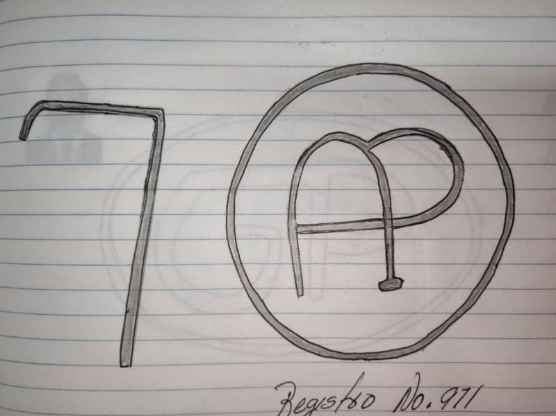 7 AP
Registro No. 971